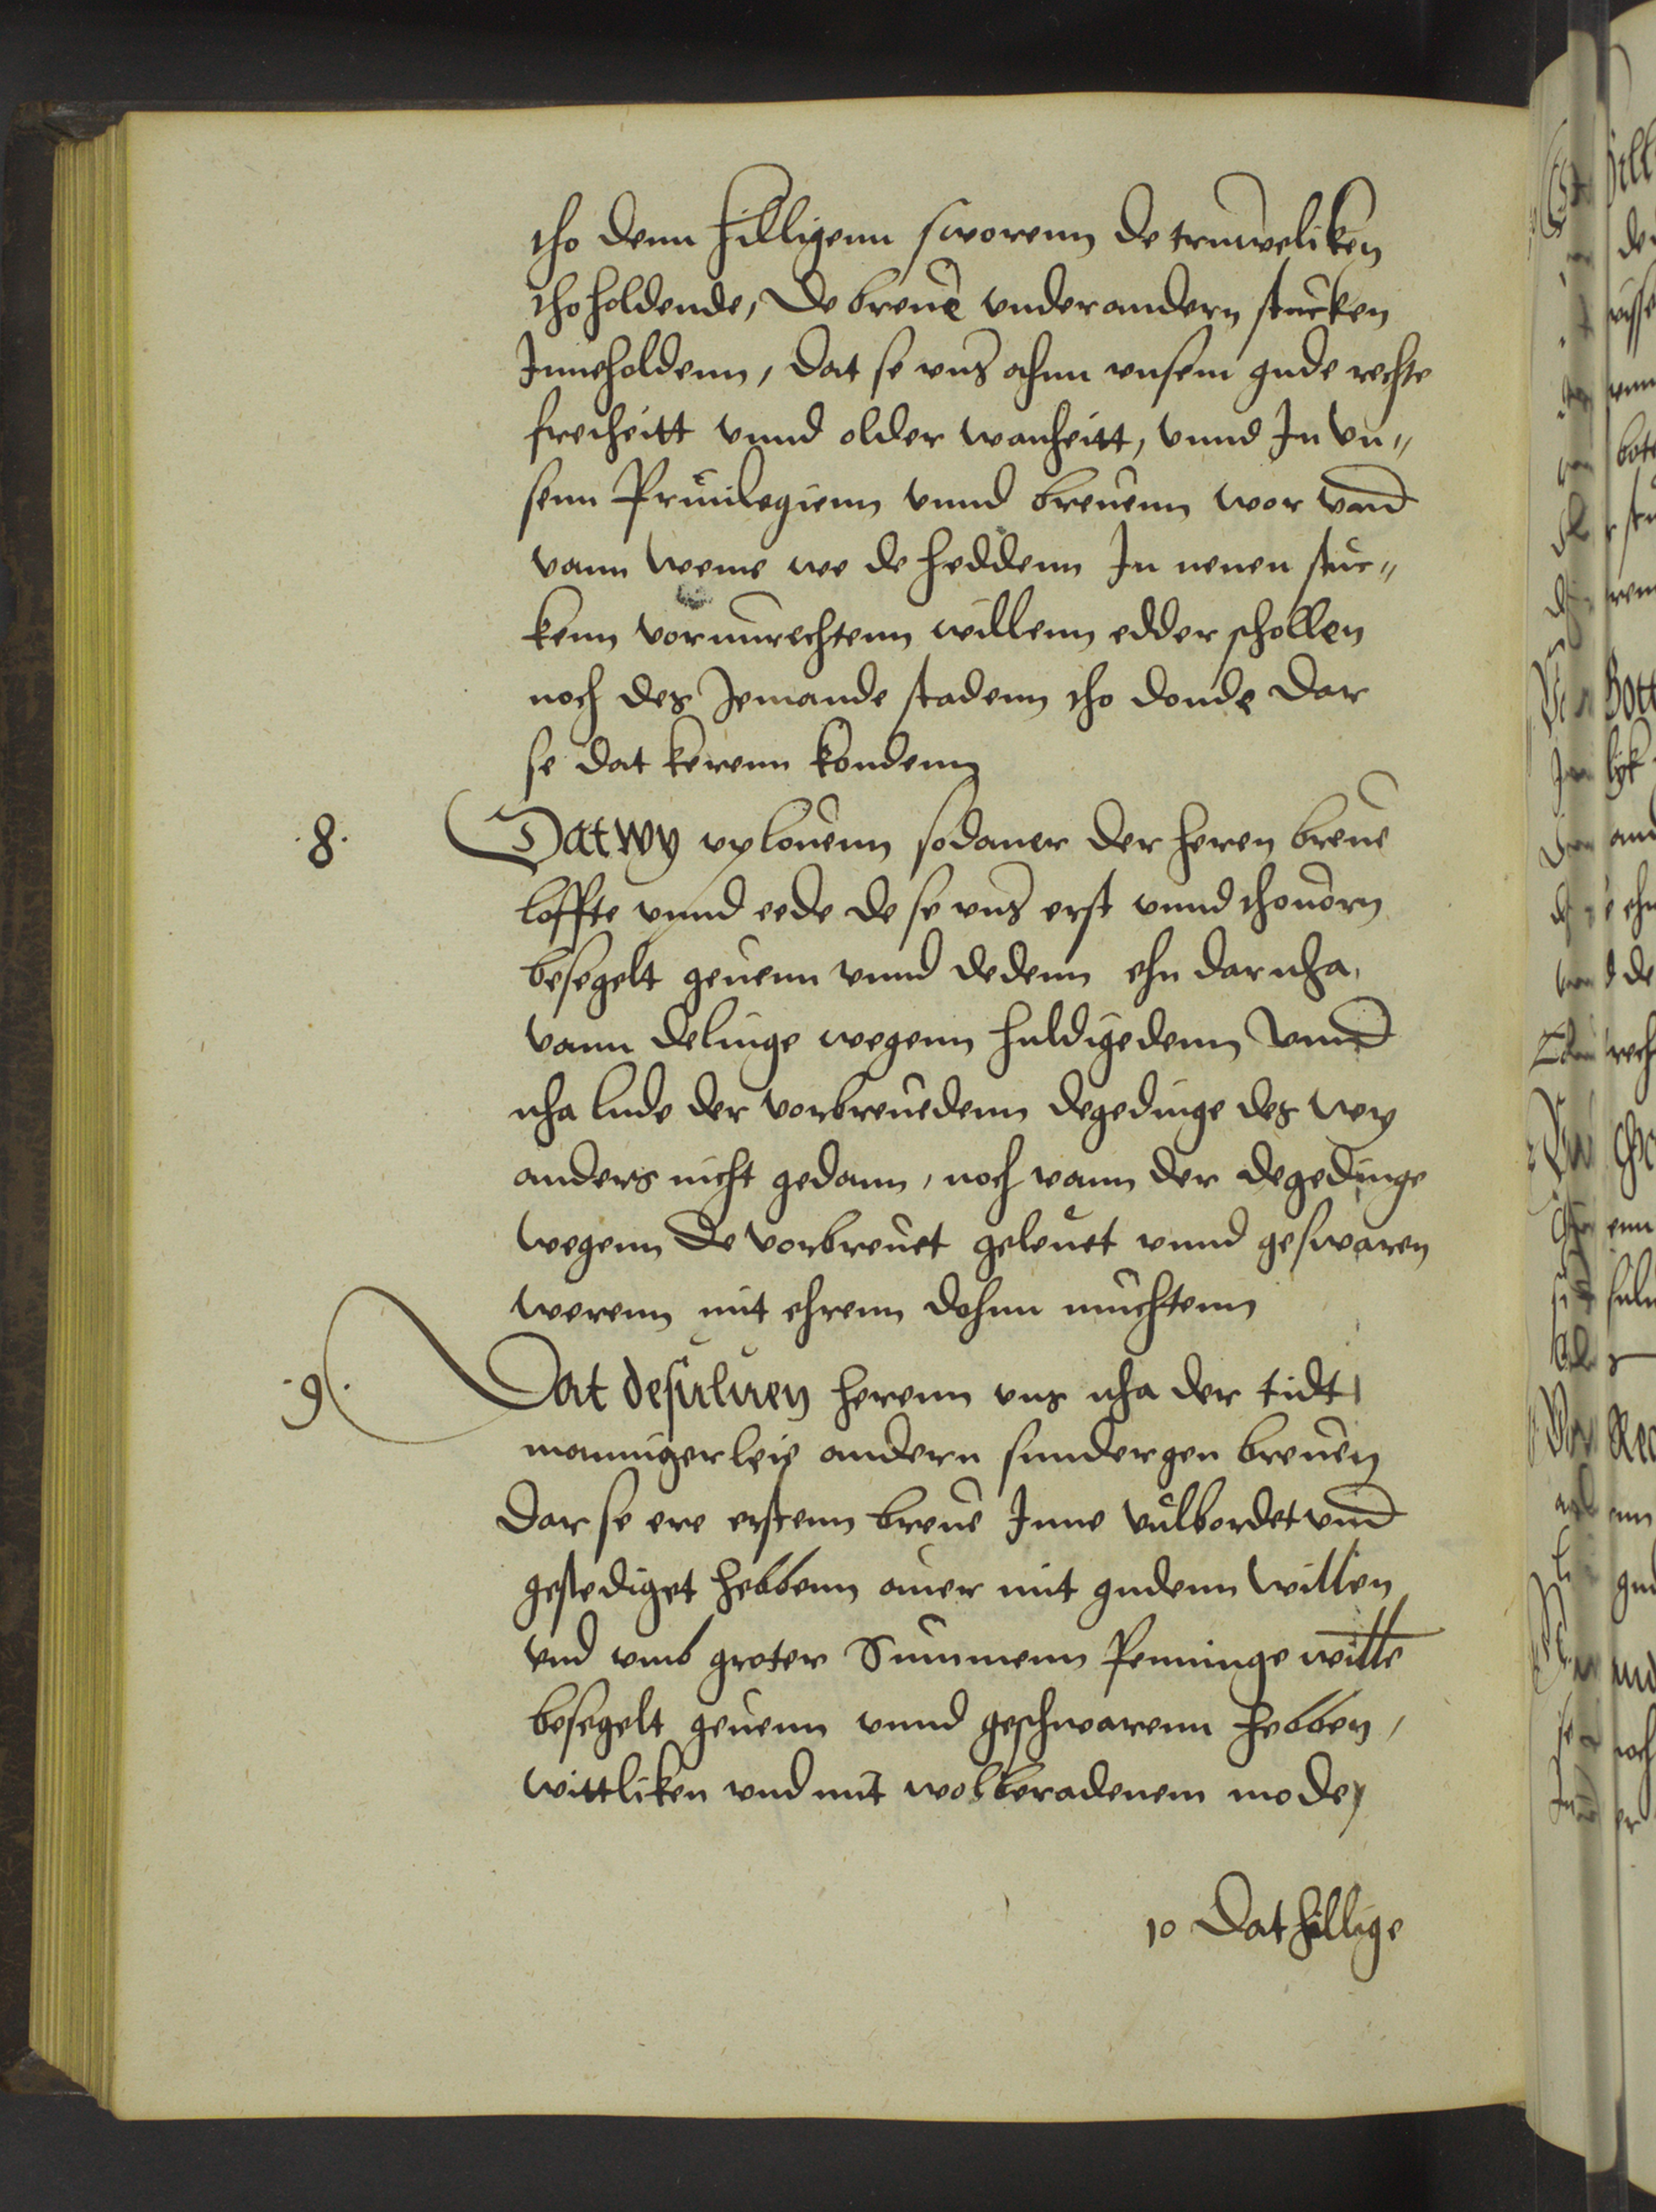 tho denn hilligenn sworenn de truweliken
tho holdende, De breue vnder andern stucken
Inneholdenn, dat se vns ahnn vnsem gude rechte
frecheitt vnnd older wanheitt, vnnd In vn„
senn Priuilegienn vnnd breuenn wor vnd
vann weme we de heddenn In nenen stuc„
kenn vorunrechtenn willenn edder schollen
noch des Jemande stadenn tho donde dar
se dat kerenn kondenn
.8. Dat wy vplouenn sodaner der heren breue
loffte vnnd eede de se vns erst vnnd thouorn
besegelt geuenn vnnd dedenn ehn dar nha,
vann delinge wegenn huldigedenn Vnnd
nha lude der vorbreuedenn degedinge des wy
anders nicht gedann, noch vann der degedinge
wegenn de vorbreuet geleuet vnnd geswaren
werenn mit ehrenn dohnn muchtenn
.9. Dat desuluen herenn vns nha der tidt
mannigerleie andern sundergen breuen
dar se ere erstenn breue Inne vulbordet vnd
gestediget hebbenn auer mit gudenn willen
vnd vmb groter Summenn Penninge wille
besegelt geuenn vnnd geschwarenn hebben,
wittliken vnd mit wolberadenem mode,
10 Dat hillige